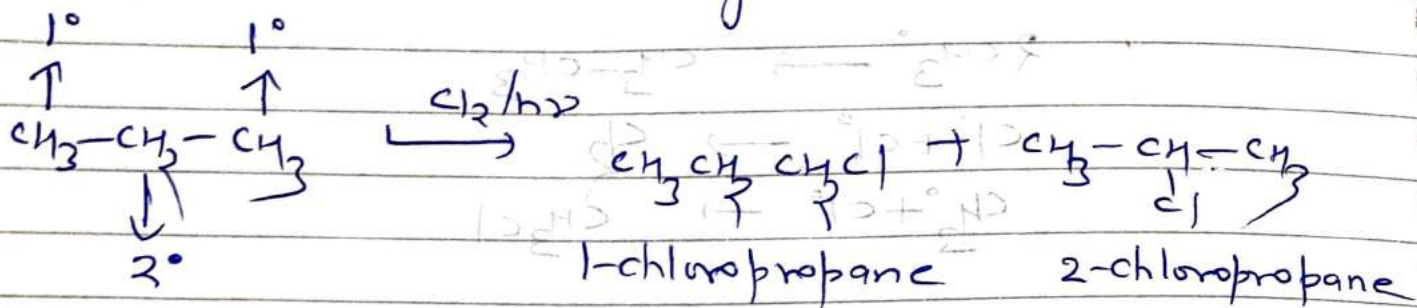 1° 1°
↑ ↑
CH3-CH2-CH3 Cl2/hν → CH3CH2CH2Cl + CH3-CH-CH3
↓ Cl
2° 1-chloropropane 2-chloropropane